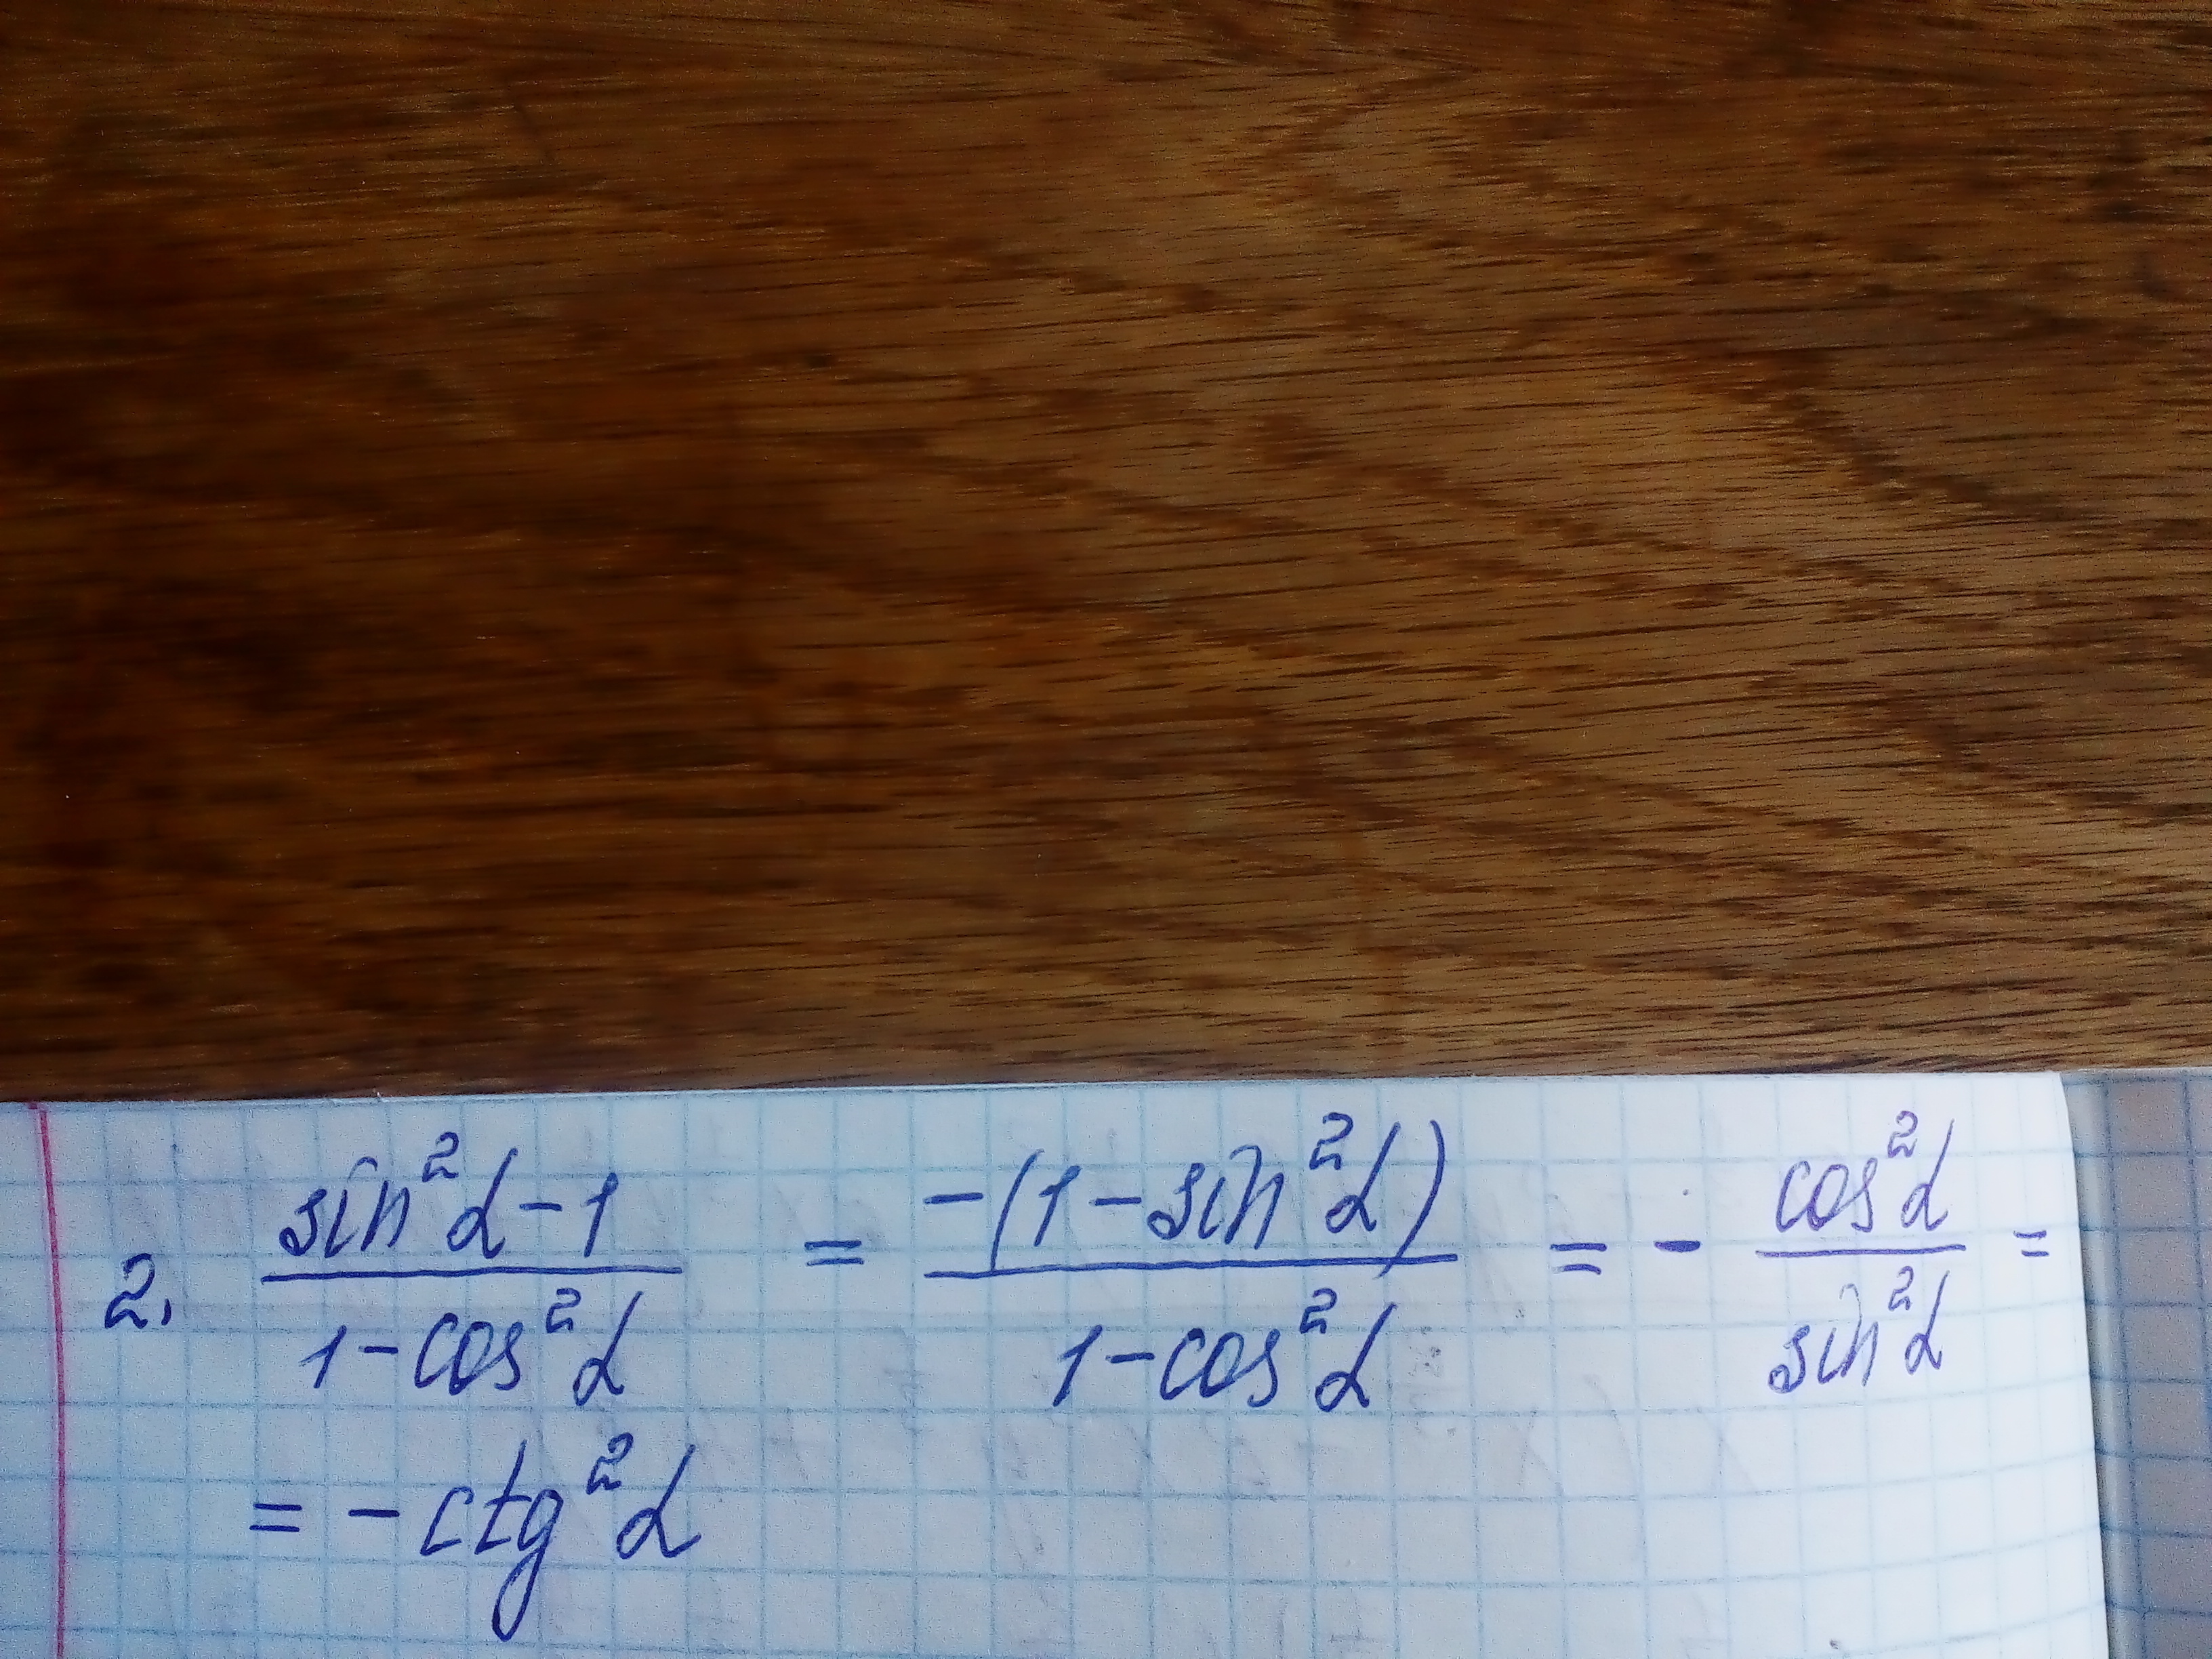 2. (sin²α-1)/(1-cos²α) = (-(1-sin²α))/(1-cos²α) = - cos²α/sin²α =
= -ctg²α